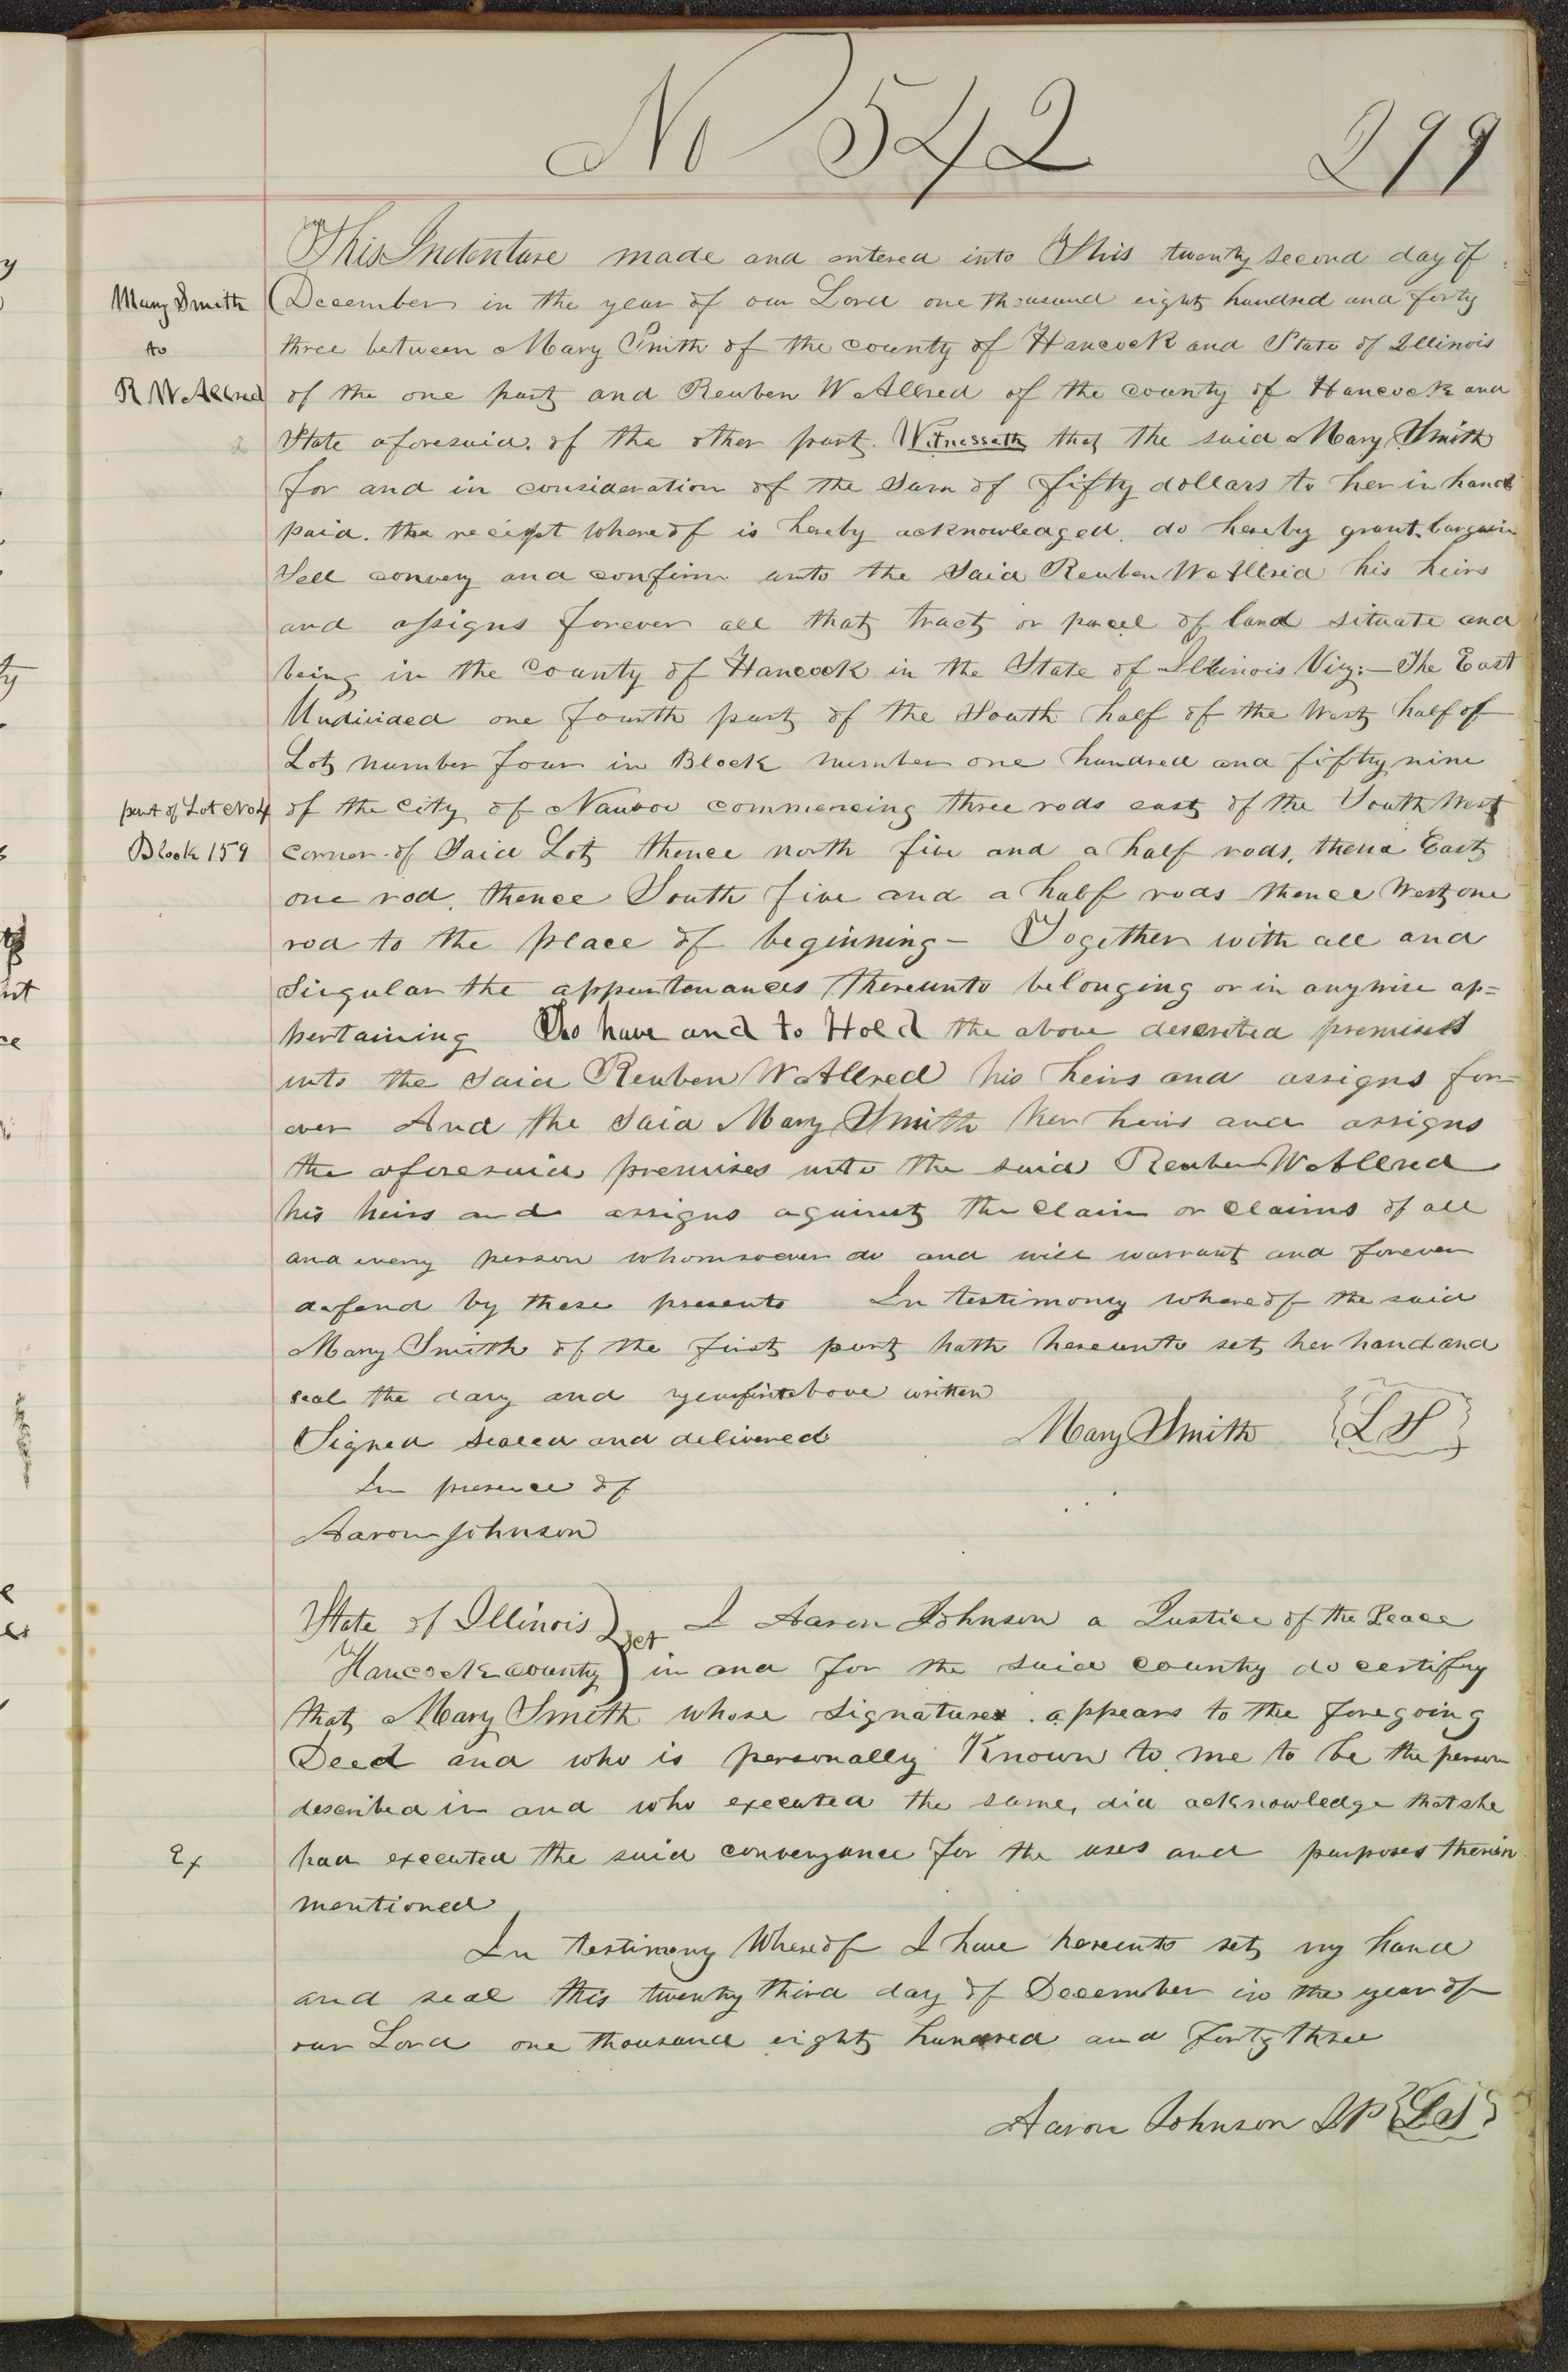 No 542
299
This Indenture made and entered into This twenty second day of
Mary Smith
December in the year of our Lord one thousand eight hundred and forty
to
three between Mary Smith of the county of Hancock and State of Illinois
R W Allred
of the one part and Reuben W Allred of the county of Hancock and
State aforesaid. of the other part. Witnesseth that the said Mary Smith
for and in consideration of the Sum of fifty dollars to her in hand
paid. the receipt whereof is hereby acknowledged. do hereby grant, bargain
Sell convey and confirm unto the Said Reuben W Allred his heirs
and assigns forever all that tract or parcel of land situate and
being in the County of Hancock in the State of Illinois Viz:— The East
Undivided one fourth part of the South half of the West half of
Lot number four in Block number one hundred and fifty nine
part of Lot No 4
of the City of Nauvoo commencing three rods east of the South West
Block 159
corner of Said Lot thence north five and a half rods, thence East
one rod, thence South five and a half rods thence West one
rod to the place of beginning — Together with all and
Singular the appurtenances thereunto belonging or in anywise ap=
pertaining To have and to Hold the above described premises
unto the Said Reuben W Allred his heirs and assigns for=
ever And the Said Mary Smith her heirs and assigns
the aforesaid premises unto the said Reuben W Allred
his heirs and assigns against the claim or claims of all
and every person whomsoever do and will warrant and forever
defend by these presents In testimony whereof the said
Mary Smith of the first part hath hereunto set her hand and
seal the day and year first above written
Signed sealed and delivered
Mary Smith {L S}
In presence of
Aaron Johnson
State of Illinois } Sct I Aaron Johnson a Justice of the Peace
Hancock county } in and for the said county do certify
that Mary Smith whose Signature appears to the foregoing
Deed and who is personally Known to me to be the person
described in and who executed the same, did acknowledge that she
Ex
had executed the said conveyance for the uses and purposes therein
mentioned
In testimony Whereof I have hereunto set my hand
and seal this twenty third day of December in the year of
our Lord one thousand eight hundred and forty three
Aaron Johnson J P {L S}